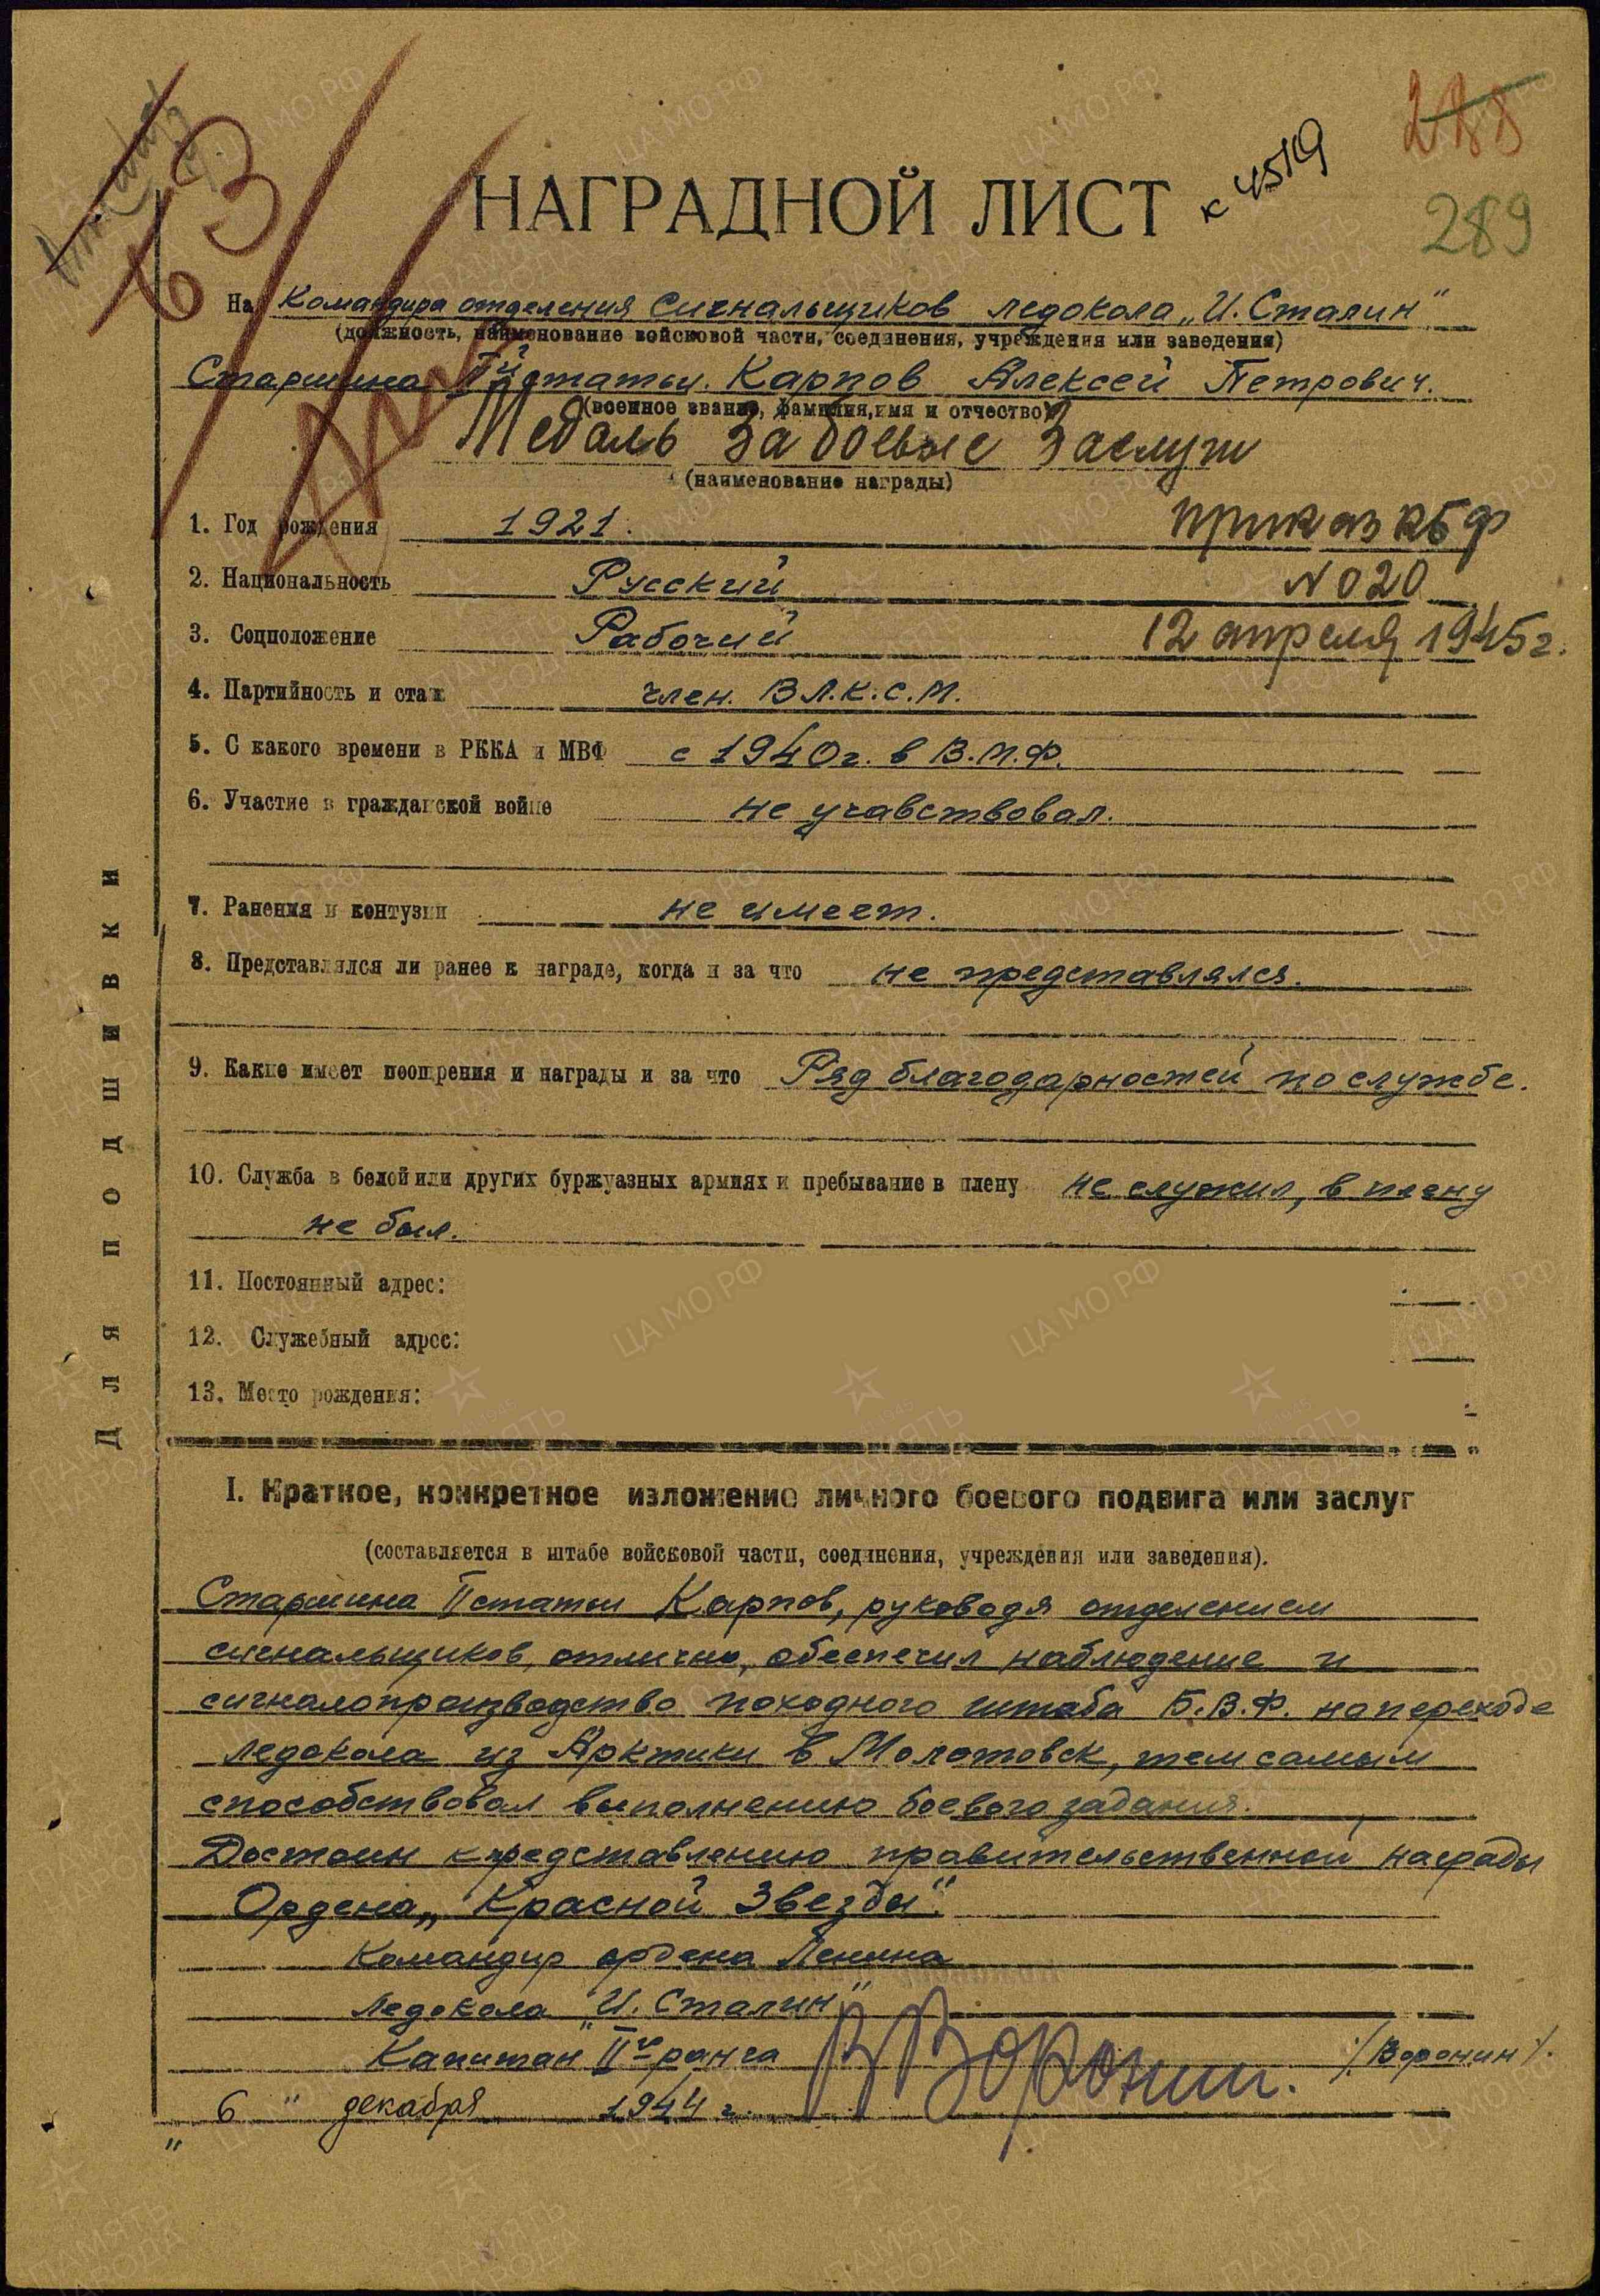 288
289
к 4519
63
НАГРАДНОЙ ЛИСТ
На Командира отделения сигнальщиков ледокола „И. Сталин"
(должность, наименование войсковой части, соединения, учреждения или заведения)
Старшина IIй статьи. Карпов Алексей Петрович.
(военное звание, фамилия, имя и отчество)
Медаль За боевые Заслуги
(наименование награды)
1. Год рождения 1921.
приказ КБФ
2. Национальность Русский
N 020
3. Соцположение Рабочий
12 апреля 1945г.
4. Партийность и стаж член. В Л.К.С.М.
5. С какого времени в РККА и МВФ с 1940г. в В.М.Ф.
6. Участие в гражданской войне не учавствовал.
7. Ранения и контузии не имеет.
8. Представлялся ли ранее к награде, когда и за что не представлялся.
9. Какие имеет поощрения и награды и за что Ряд благодарностей по службе.
10. Служба в белой или других буржуазных армиях и пребывание в плену не служил, в плену
не был.
11. Постоянный адрес:
12. Служебный адрес:
13. Место рождения:
Для подшивки
I. Краткое, конкретное изложение личного боевого подвига или заслуг
(составляется в штабе войсковой части, соединения, учреждения или заведения).
Старшина II статьи Карпов, руководя отделением
сигнальщиков, отлично, обеспечил наблюдение и
сигналопроизводство походного штаба Б.В.Ф. на переходе
ледокола из Арктики в Молотовск, тем самым
способствовал выполнению боевого задания.
Достоин к представлению правительственной награды
Ордена „Красной Звезды".
Командир ордена Ленина
Ледокола „И. Сталин"
Капитан IIго ранга ВВоронин. /Воронин/.
6 " декабря 1944 г.
"
ЦА МО РФ
ПАМЯТЬ НАРОДА